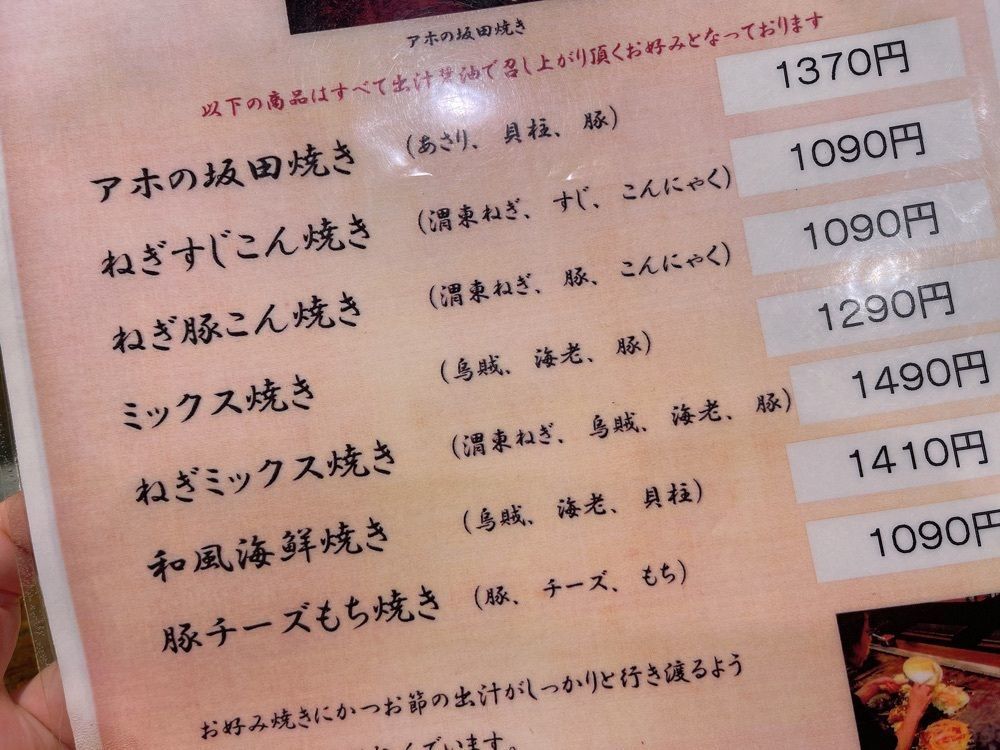 アホの坂田焼き
以下の商品はすべて出汁醤油で召し上がり頂くお好みとなっております
アホの坂田焼き (あさり、貝柱、豚) 1370円
ねぎすじこん焼き (渭東ねぎ、すじ、こんにゃく) 1090円
ねぎ豚こん焼き (渭東ねぎ、豚、こんにゃく) 1090円
ミックス焼き (烏賊、海老、豚) 1290円
ねぎミックス焼き (渭東ねぎ、烏賊、海老、豚) 1490円
和風海鮮焼き (烏賊、海老、貝柱) 1410円
豚チーズもち焼き (豚、チーズ、もち) 1090円
お好み焼きにかつお節の出汁がしっかりと行き渡るよう
んでいます。